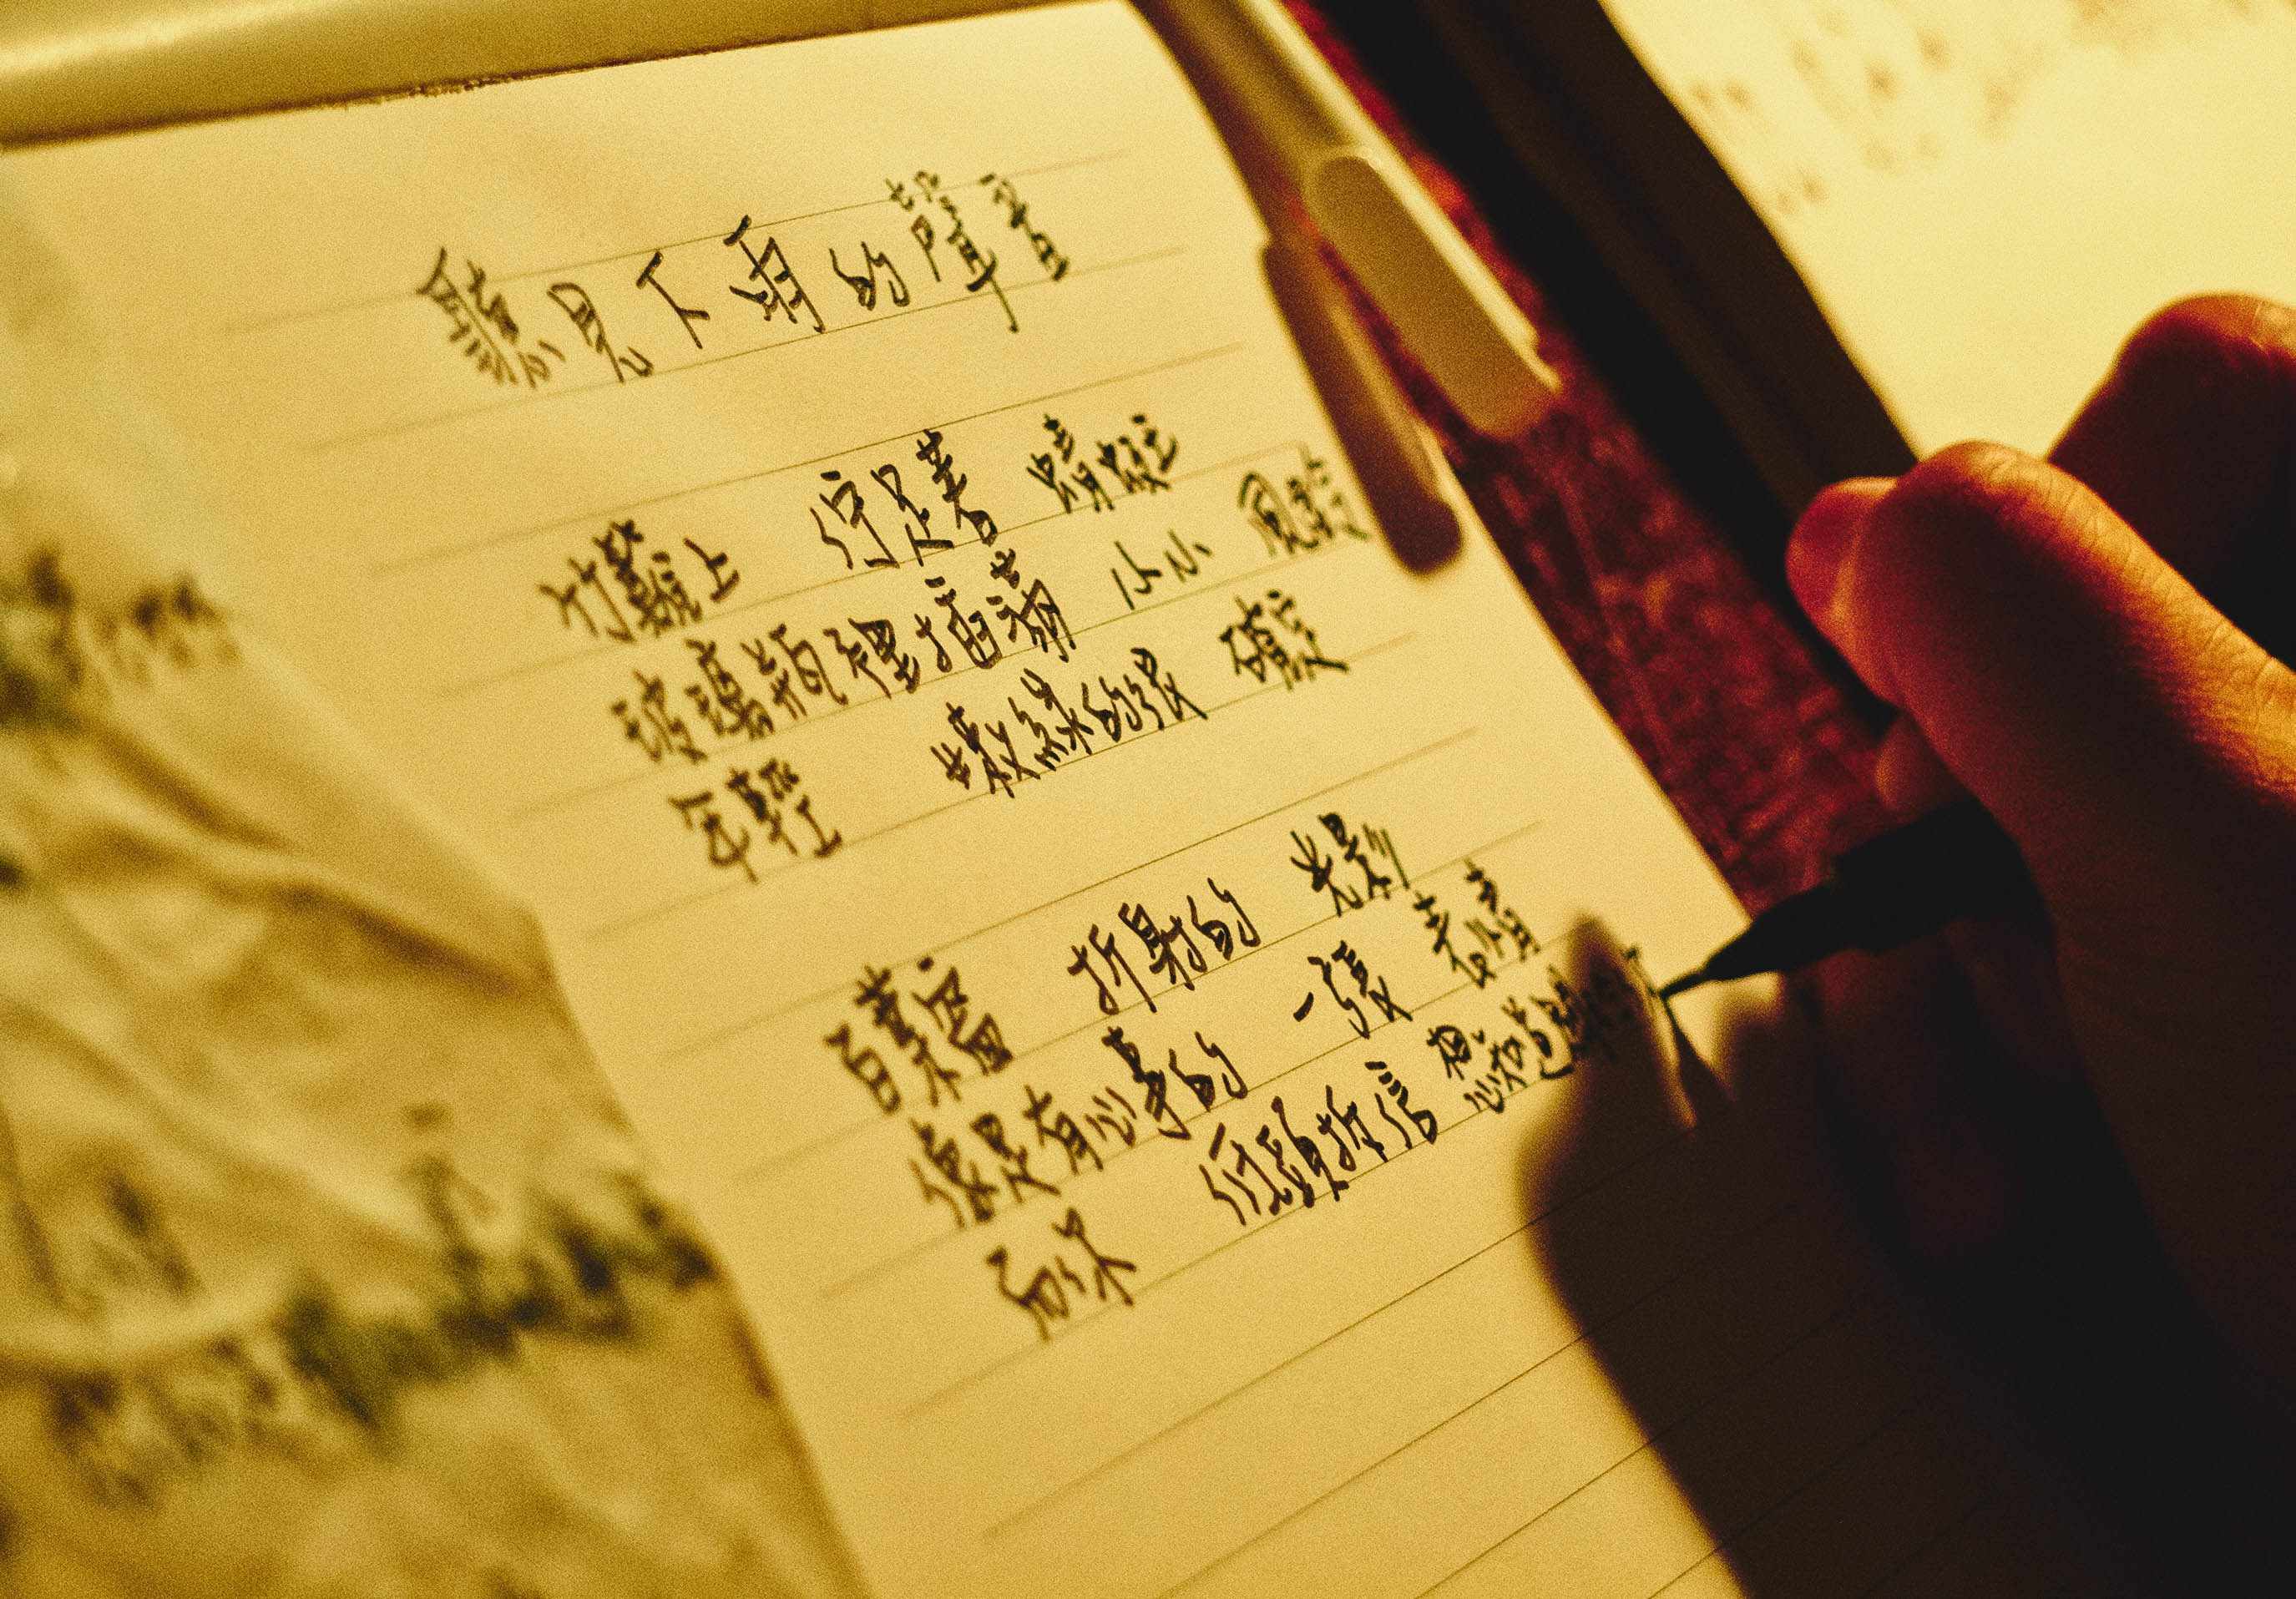 聽見下雨的聲音
竹籬上 佇足著 蜻蜓
玻璃瓶裡插滿 小小 風鈴
年輕 嫩綠的很 確定
百葉窗 折射的 光影
像是有心事的 一張 表情
而你 低頭拆信 想知道關